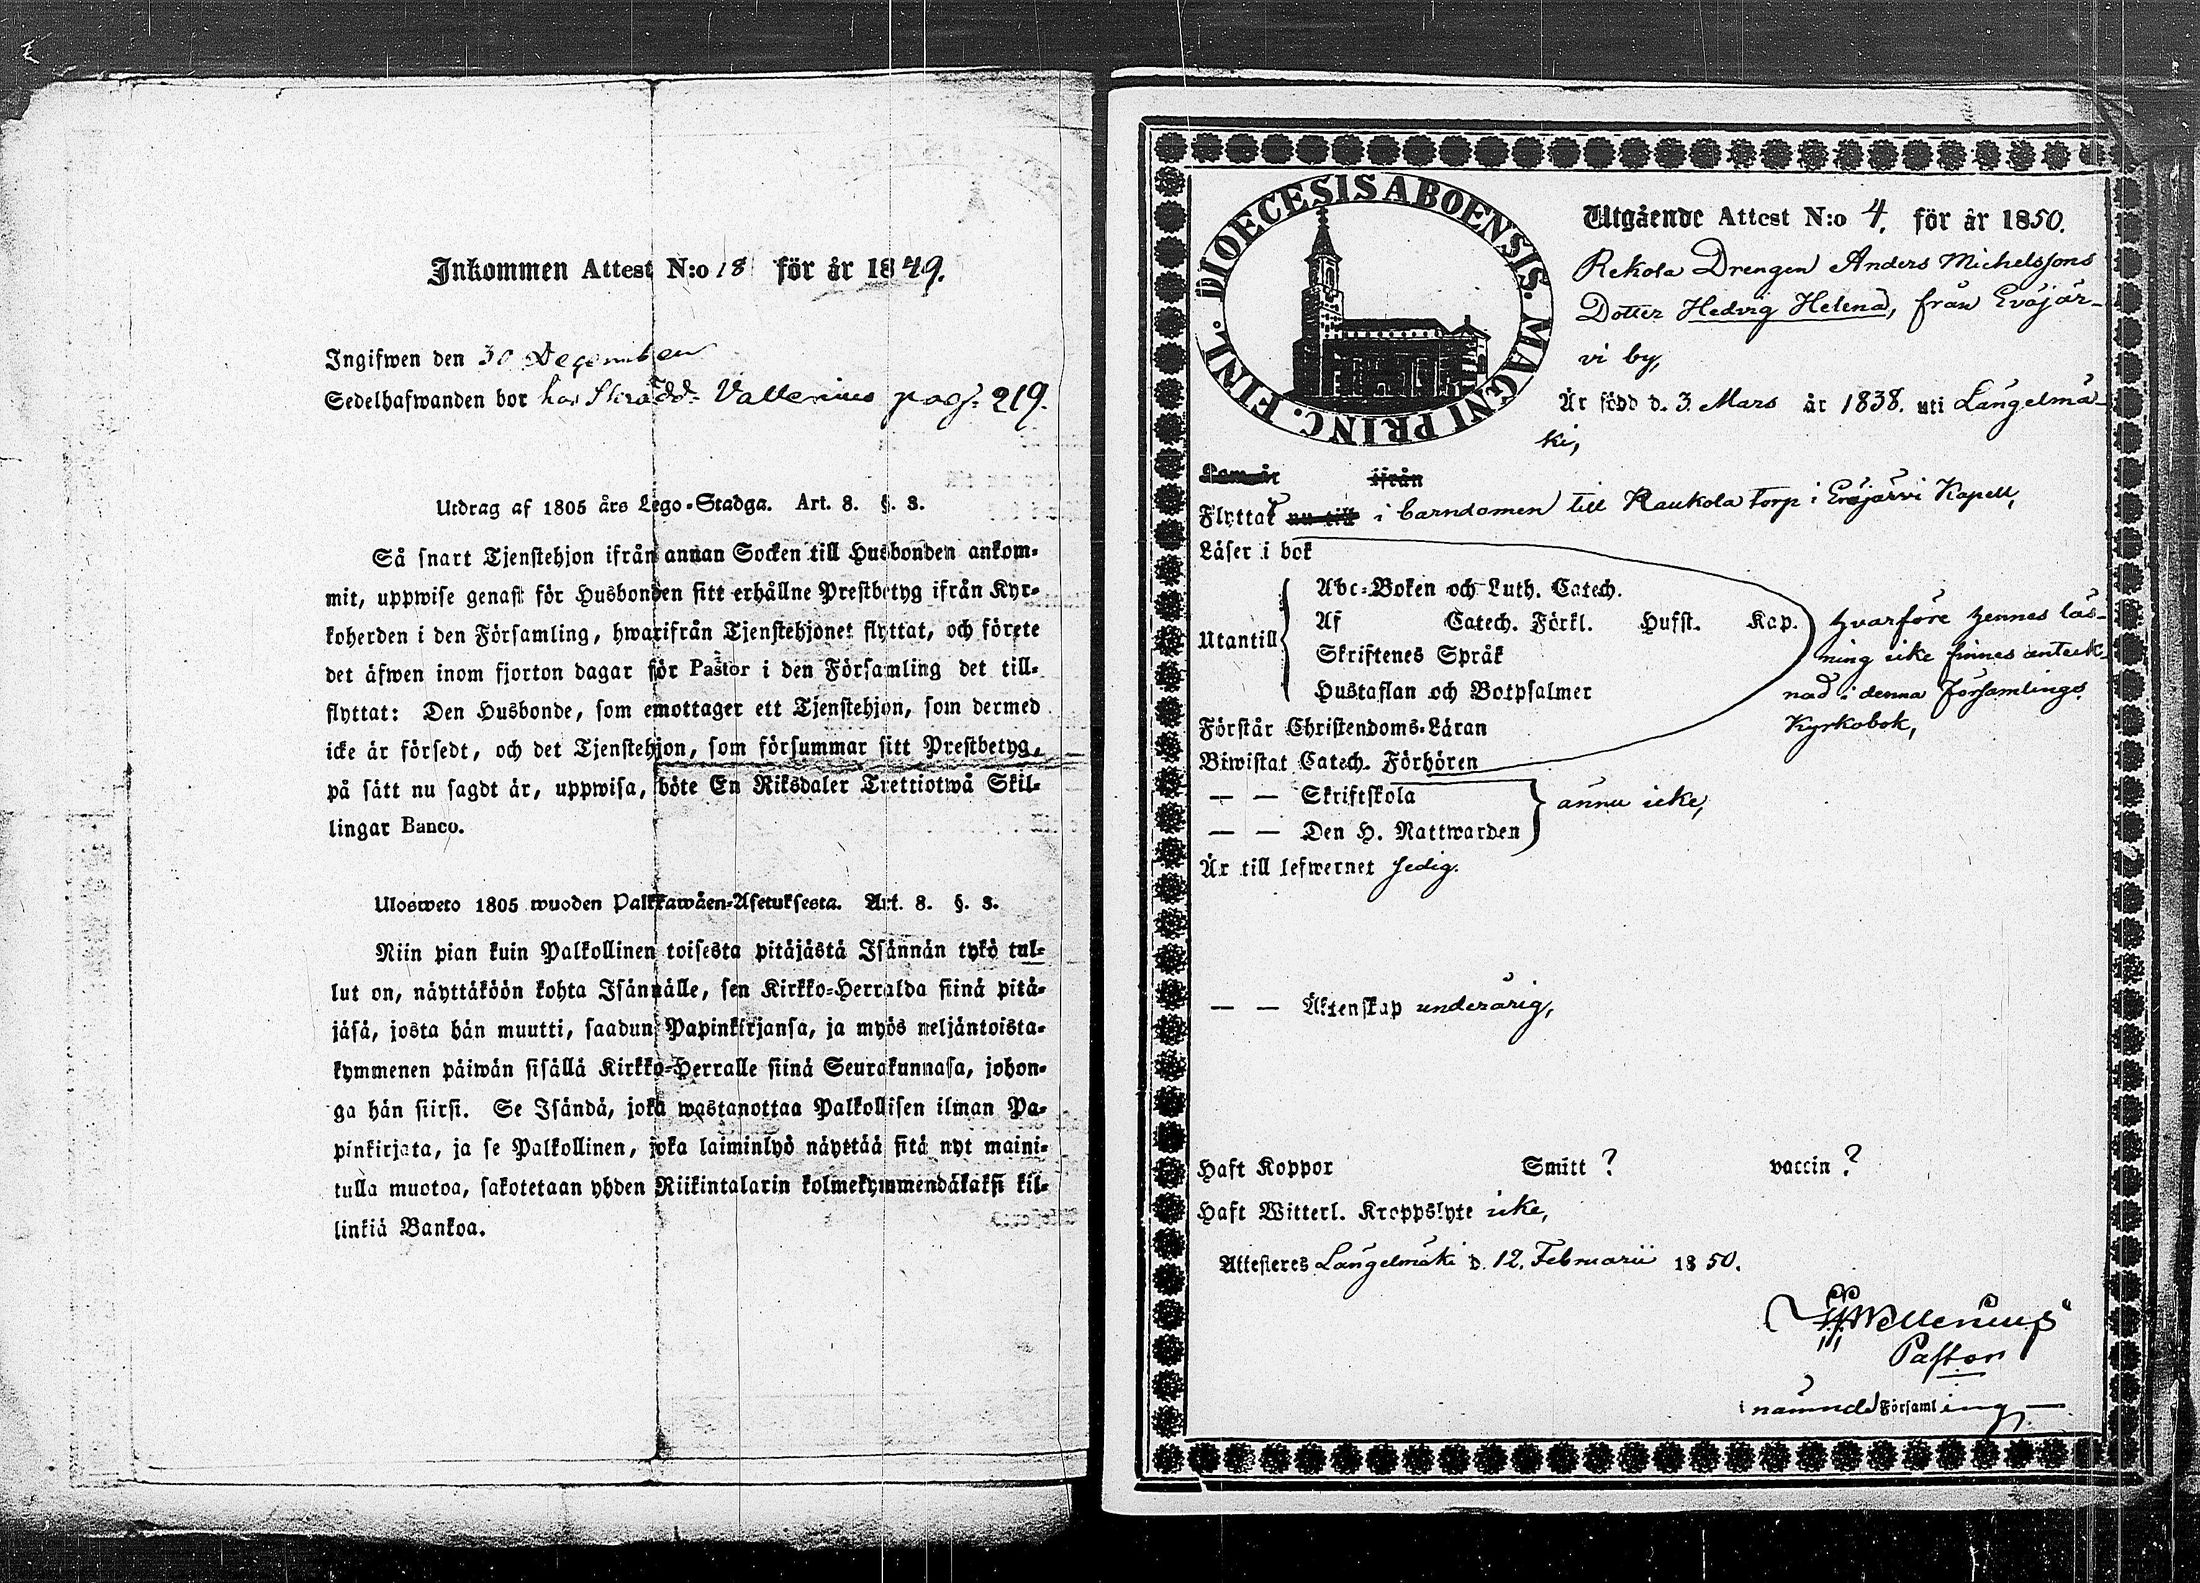 Inkommen Attest N:o 18 för år 1849.
Ingifwen den 30 December
Sedelhafwanden bor hos Skrädd. Vallenius pag: 219.
Utdrag af 1805 års Lego-Stadga. Art. 8. §. 8.
Så snart Tjenstehjon ifrån annan Socken till Husbonden ankom-
mit, uppwise genast för Husbonden sitt erhållne Prestbetyg ifrån Kyr-
koherden i den Församling, hwarifrån Tjenstehjonet flyttat, och förete
det äfwen inom fjorton dagar för Pastor i den Församling det till-
flyttat: Den Husbonde, som emottager ett Tjenstehjon, som dermed
icke är försedt, och det Tjenstehjon, som försummar sitt Prestbetyg,
på sätt nu sagdt är, uppwisa, böte En Riksdaler Trettiotwå Skil-
lingar Banco.
Ulosweto 1805 wuoden Palkkawäen-Asetuksesta. Art. 8. §. 8.
Niin pian kuin Palkollinen toisesta pitäjästä Isännän tykö tul-
lut on, näyttäköön kohta Isännälle, sen Kirkko-Herralda siinä pitä-
jäsä, josta hän muutti, saadun Papinkirjansa, ja myös neljäntoista-
kymmenen päiwän sisällä Kirkko-Herralle siinä Seurakunnasa, johon-
ga hän siirsi. Se Isändä, joka wastanottaa Palkollisen ilman Pa-
pinkirjata, ja se Palkollinen, joka laiminlyö näyttää sitä nyt maini-
tulla muotoa, sakotetaan yhden Riikintalarin kolmekymmendäkaksi kil-
linkiä Bankoa.
DIOECESIS ABOENSIS. MAGNI PRINC. FINL.
Utgående Attest N:o 4. för år 1850.
Rekola Drengen Anders Michelssons
Dotter Hedvig Helena, från Eväjär-
vi by,
Är född d. 3. Mars år 1838. uti Längelmä-
ki,
Kom år ifrån
Flyttat nu till i barndomen till Raukola torp i Eräjärvi Kapell,
Läser i bok
Abc-Boken och Luth. Catech.
Utantill Af Catech. Förkl. Hufst. Kap. hvarföre hennes läs-
Skriftenes Språk ning icke finnes anteck-
Hustaflan och Botpsalmer nad i denna Församlings
Förstår Christendoms-Läran Kyrkobok,
Biwistat Catech. Förhören
— — Skriftskola ännu icke,
— — Den H. Nattwarden
Är till lefwernet sedig.
— — Äktenskap underårig,
Haft Koppor Smitt ? vaccin ?
Haft Witterl. Kroppslyte icke,
Attesteres Längelmäki d. 12. Februarii 1850.
Wellenius
Pastor
i nämnde Församling,—